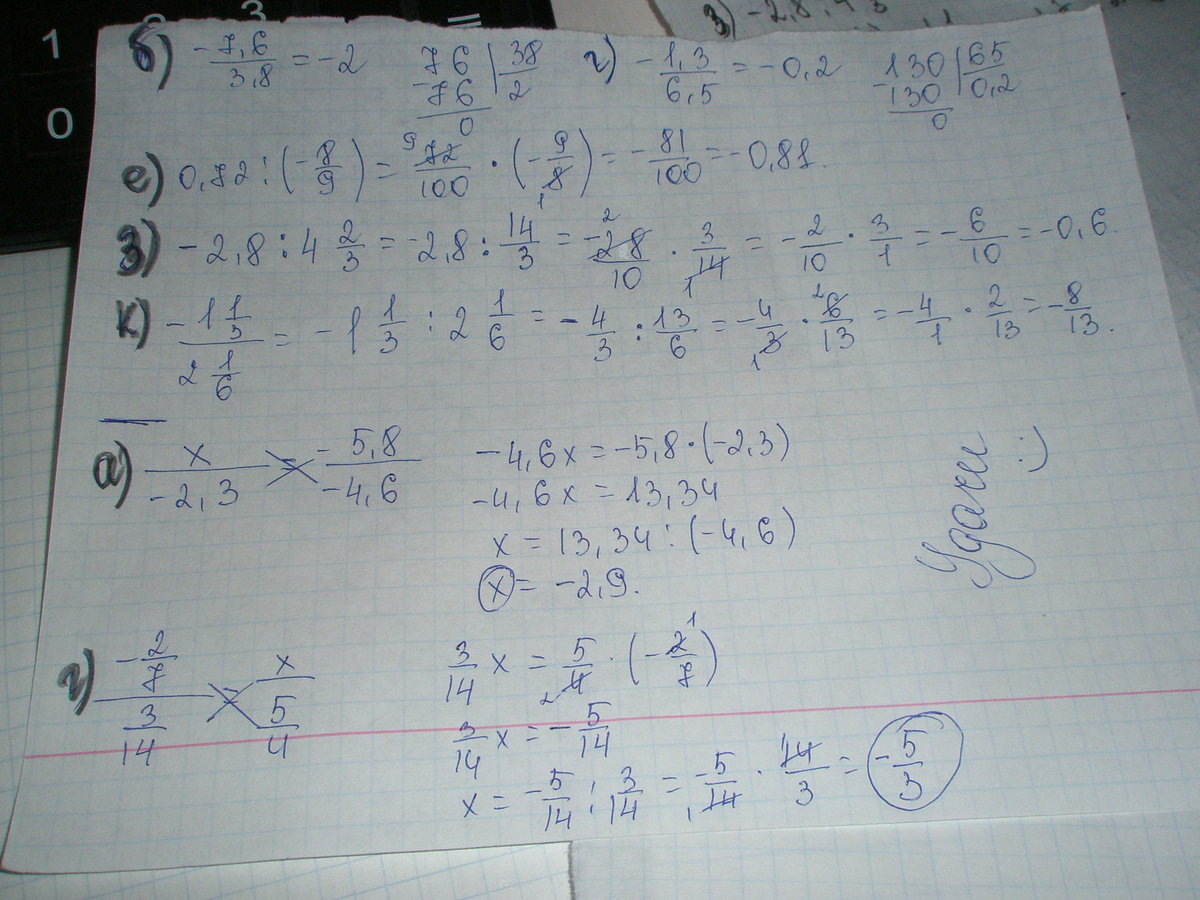 1 0 3 =
0
3) -2,8 : 4
б) -7,6/3,8 = -2   -76 | 38
76   2
0
г) -1,3/6,5 = -0,2   -130 | 65
130   0,2
0
е) 0,72 : (-8/9) = 9 72/100 · (-9/8 1) = -81/100 = -0,81.
з) -2,8 : 4 2/3 = -2,8 : 14/3 = -28 2/10 · 3/14 1 = -2/10 · 3/1 = -6/10 = -0,6.
к) -1 1/3 / 2 1/6 = -1 1/3 : 2 1/6 = -4/3 : 13/6 = -4/3 1 · 2 6/13 = -4/1 · 2/13 = -8/13.
а) x/-2,3 = -5,8/-4,6   -4,6x = -5,8 · (-2,3)
-4,6x = 13,34
x = 13,34 : (-4,6)
x = -2,9.
Удачи :)
г) -2/7 / 3/14 = x / 5/4   3/14 x = 5/4 2 · (-2 1/7)
3/14 x = -5/14
x = -5/14 : 3/14 = -5/14 1 · 14/3 = -5/3